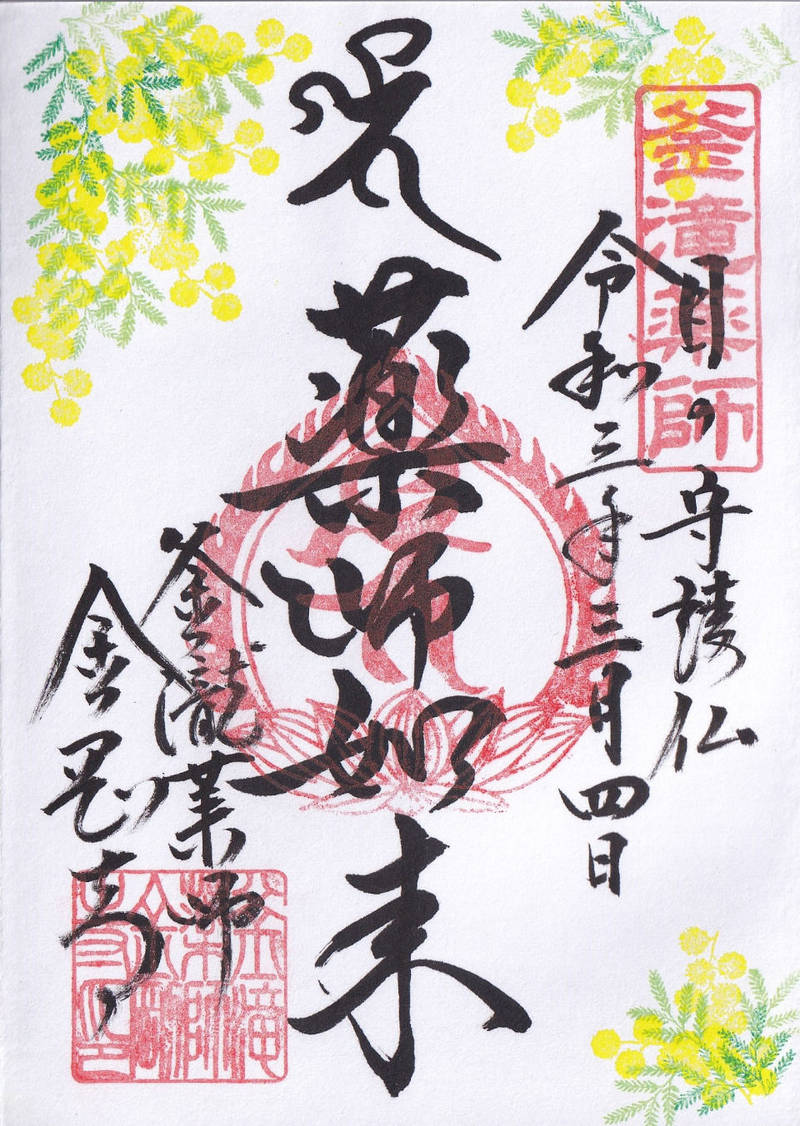 釜滝薬師
目の守護仏
令和三年三月四日
薬師如来
釜瀧薬師
金剛寺
釜滝
薬師
金剛
寺印